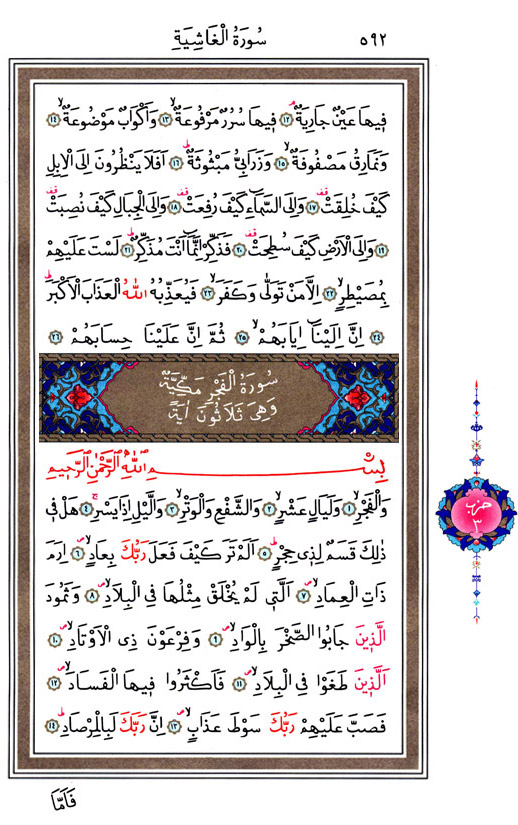 سُورَةُ الْغَاشِيَةِ ٥٩٢
فِيهَا عَيْنٌ جَارِيَةٌۢ ﴿١٢﴾ فِيهَا سُرُرٌ مَرْفُوعَةٌۙ ﴿١٣﴾ وَاَكْوَابٌ مَوْضُوعَةٌۙ ﴿١٤﴾
وَنَمَارِقُ مَصْفُوفَةٌۙ ﴿١٥﴾ وَزَرَابِيُّ مَبْثُوثَةٌۜ ﴿١٦﴾ اَفَلَا يَنْظُرُونَ اِلَى الْاِبِلِ
كَيْفَ خُلِقَتْ ﴿١٧﴾ وَاِلَى السَّمَٓاءِ كَيْفَ رُفِعَتْ ﴿١٨﴾ وَاِلَى الْجِبَالِ كَيْفَ نُصِبَتْ
﴿١٩﴾ وَاِلَى الْاَرْضِ كَيْفَ سُطِحَتْ ﴿٢٠﴾ فَذَكِّرْ اِنَّمَٓا اَنْتَ مُذَكِّرٌۜ ﴿٢١﴾ لَسْتَ عَلَيْهِمْ
بِمُصَيْطِرٍۙ ﴿٢٢﴾ اِلَّا مَنْ تَوَلّٰى وَكَفَرَۙ ﴿٢٣﴾ فَيُعَذِّبُهُ اللّٰهُ الْعَذَابَ الْاَكْبَرَۜ
﴿٢٤﴾ اِنَّ اِلَيْنَٓا اِيَابَهُمْۙ ﴿٢٥﴾ ثُمَّ اِنَّ عَلَيْنَا حِسَابَهُمْ ﴿٢٦﴾
سُورَةُ الْفَجْرِ مَكِّيَّةٌ
وَهِيَ ثَلَاثُونَ اٰيَةً
بِسْمِ اللّٰهِ الرَّحْمٰنِ الرَّحٖيمِ
وَالْفَجْرِۙ ﴿١﴾ وَلَيَالٍ عَشْرٍۙ ﴿٢﴾ وَالشَّفْعِ وَالْوَتْرِۙ ﴿٣﴾ وَالَّيْلِ اِذَا يَسْرِۚ ﴿٤﴾ هَلْ فٖي
ذٰلِكَ قَسَمٌ لِذٖي حِجْرٍۜ ﴿٥﴾ اَلَمْ تَرَ كَيْفَ فَعَلَ رَبُّكَ بِعَادٍۙ ﴿٦﴾ اِرَمَ
ذَاتِ الْعِمَادِۙ ﴿٧﴾ اَلَّتٖي لَمْ يُخْلَقْ مِثْلُهَا فِي الْبِلَادِۙ ﴿٨﴾ وَثَمُودَ
الَّذٖينَ جَابُوا الصَّخْرَ بِالْوَادِۙ ﴿٩﴾ وَفِرْعَوْنَ ذِي الْاَوْتَادِۙ ﴿١٠﴾
اَلَّذٖينَ طَغَوْا فِي الْبِلَادِۙ ﴿١١﴾ فَاَكْثَرُوا فٖيهَا الْفَسَادَۙ ﴿١٢﴾
فَصَبَّ عَلَيْهِمْ رَبُّكَ سَوْطَ عَذَابٍۙ ﴿١٣﴾ اِنَّ رَبَّكَ لَبِالْمِرْصَادِۜ ﴿١٤﴾
حزب
٣
فَاَمَّا